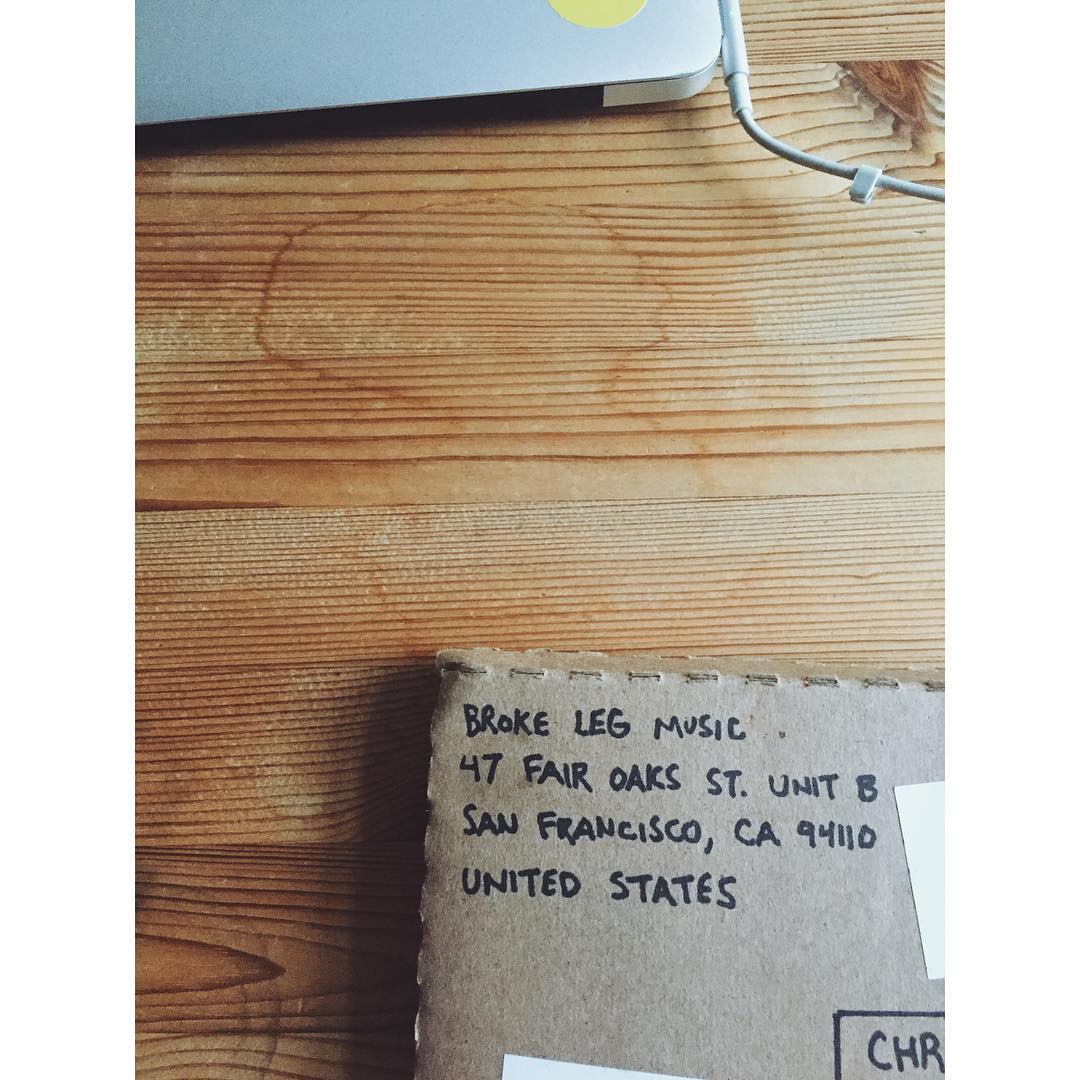 BROKE LEG MUSIC
47 FAIR OAKS ST. UNIT B
SAN FRANCISCO, CA 94110
UNITED STATES
CHR